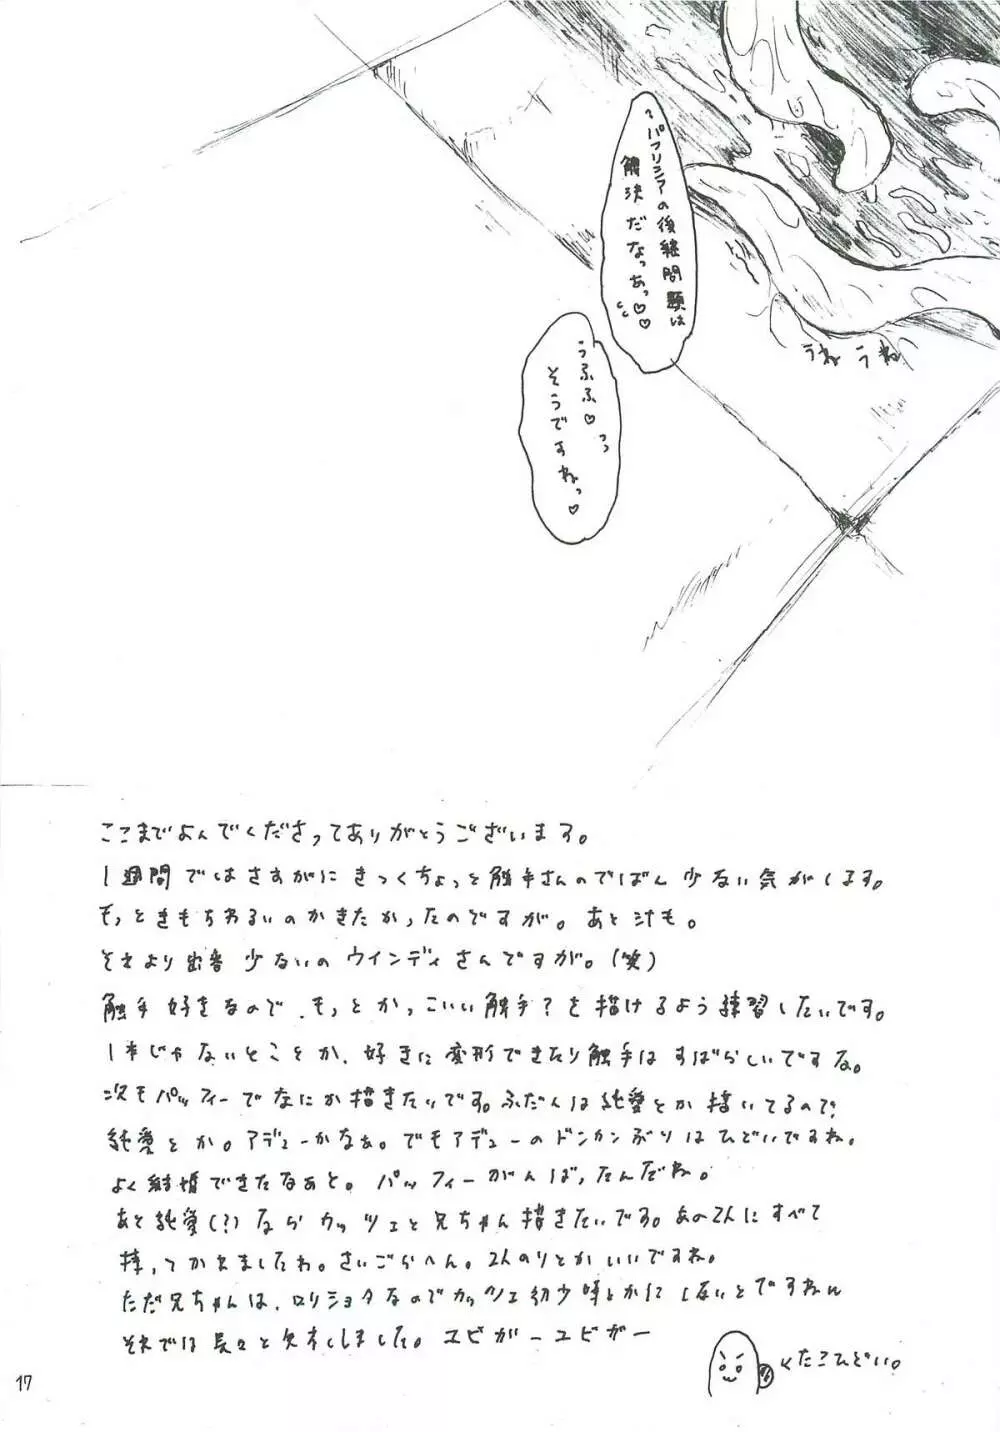 パフリシアの後継問題は
解決だなっあっ♡♡
うふふ♡
そうですねっ♡
うね うね
ここまでよんでくださってありがとうございます。
1週間ではさすがにきっくちょっと触手さんのでばん少ない気がします。
もっときもちわるいのかきたかったのですが。あと汁も。
それより出番少ないのウインディさんですが。(笑)
触手好きなので、もっとかっこいい触手?を描けるよう練習したいです。
1本じゃないとことか、好きに変形できたり触手はすばらしいですな。
次もパッフィーでなにか描きたいです。ふだんは純愛とか描いてるので
純愛とか。アデューかなぁ。でもアデューのドンカンぶりはひどいですね。
よく結婚できたなぁと。パッフィーがんばったんだね。
あと純愛(?)ならカッツェと兄ちゃん描きたいです。あの2人にすべて
持ってかれましたね。さいごらへん。2人のりとかいいですね。
ただ兄ちゃんは、ロリショタなのでカッツェ幼少時とかにしないとですねw
それでは長々と失礼しました。ユビガーユビガー
くたこひどい。
17